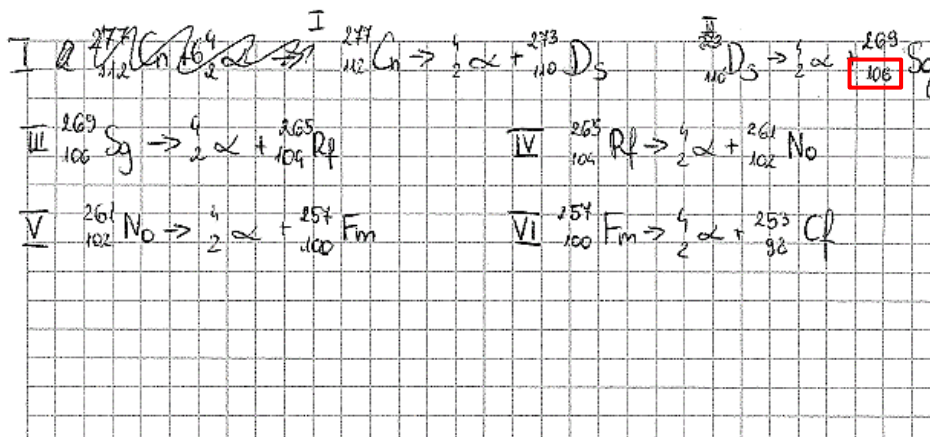 I ²⁷⁷₁₁₂Cn → ⁴₂α + ²⁷³₁₁₀Ds II ²⁷³₁₁₀Ds → ⁴₂α + ²⁶⁹₁₀₆Sg
III ²⁶⁹₁₀₆Sg → ⁴₂α + ²⁶⁵₁₀₄Rf IV ²⁶⁵₁₀₄Rf → ⁴₂α + ²⁶¹₁₀₂No
V ²⁶¹₁₀₂No → ⁴₂α + ²⁵⁷₁₀₀Fm VI ²⁵⁷₁₀₀Fm → ⁴₂α + ²⁵³₉₈Cf